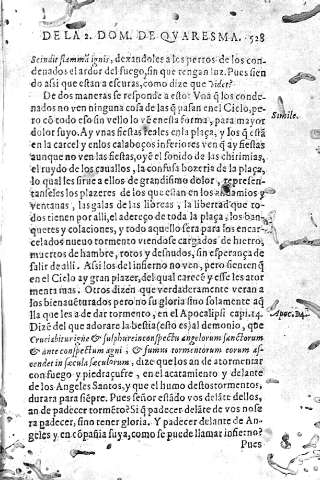 DE LA 2. DOM. DE QVARESMA. 528
Scindit flammã ignis, dexandoles a los perros de los con-
denados el ardor del fuego, sin que tengan luz. Pues sien
do assi que estan a escuras, como dize que Videt?
De dos maneras se responde a esto: Vna q̃ los conde-
nados no ven ninguna cosa de las q̃ passan en el Cielo, pe-
ro cõ todo esso sin vello lo vẽ en esta forma, para mayor
dolor suyo. Ay vnas fiestas reales en la plaça, y los q̃ estã
en la carcel y en los calaboços inferiores ven q̃ ay fiestas
aunque no ven las fiestas, oyẽ el sonido de las chirimias,
el ruydo de los cauallos, la confusa bozeria de la plaça,
lo qual les sirue a ellos de grandissimo dolor, represen-
tanseles los plazeres de los que estan en los andamios y
ventanas, las galas de las libreas, la libertad que to-
dos tienen por alli, el adereço de toda la plaça, los ban-
quetes y colaciones, y todo aquello sera para los encar-
celados nueuo tormento viendose cargados de hierro,
muertos de hambre, rotos y desnudos, sin esperança de
salir de alli. Assi los del infierno no ven, pero sienten q̃
en el Cielo ay gran plazer, del qual carecẽ y esse les ator
menta mas. Otros dizen que verdaderamente veran a
los bienauẽturados pero no su gloria sino solamente aq̃
lla que les a de dar tormento, en el Apocalipsi capi. 14.
Dize del que adorare la bestia (esto es) al demonio, que
Cruciabitur igne & sulphure in conspectu angelorum sanctorum
& ante conspectum agni, & fumus tormentorum eorum as-
cendet in sæcula sæculorum, dize que los an de atormentar
con fuego y piedraçufre, en el acatamiento y delante
de los Angeles Santos, y que el humo destos tormentos,
durara para siẽpre. Pues señor estãdo vos delãte dellos,
an de padecer tormẽto? Si q̃ padecer delãte de vos no se
ra padecer, sino tener gloria. Y padecer delante de An-
geles y en cõpañia suya, como se puede llamar infierno?
Pues
Simile.
Apoc. 14.